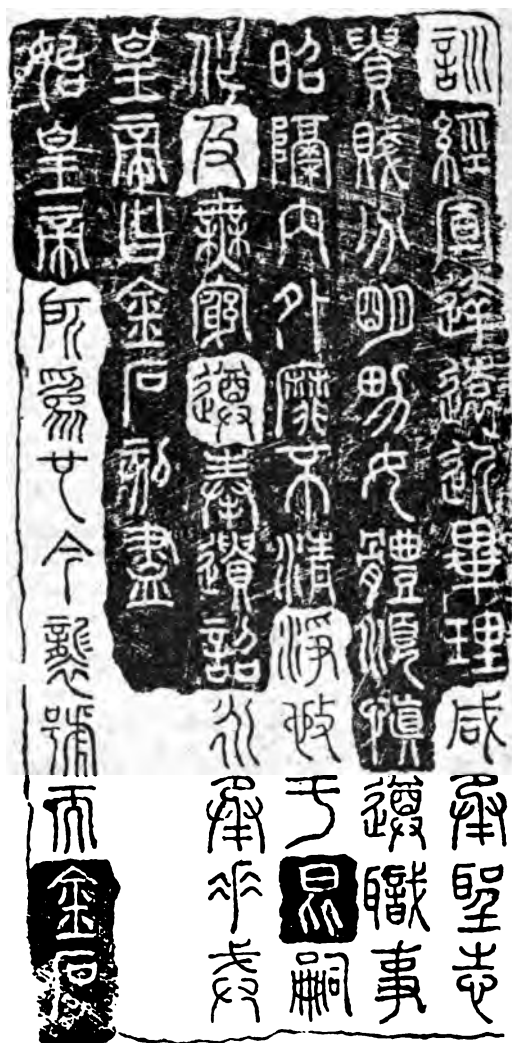 訓經宣達遠近畢理咸承聖志
貴賤分明男女體順慎遵職事
昭隔內外靡不清淨施于昆嗣
化及無窮遵奉遺詔永承重戒
皇帝曰金石刻盡
始皇帝所為也今襲號而金石